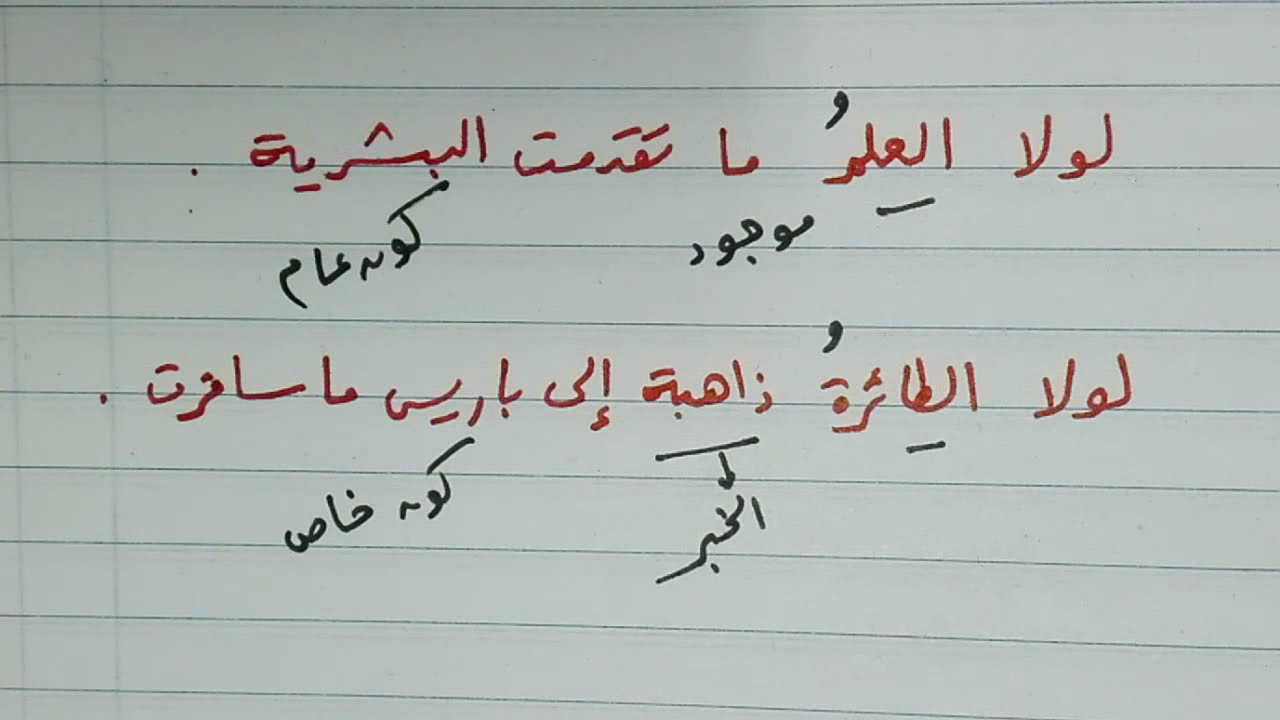 لولا العلمُ ما تقدمت البشرية .
موجود
كون عام
لولا الطائرةُ ذاهبة إلى باريس ما سافرت .
الخبر
كون خاص